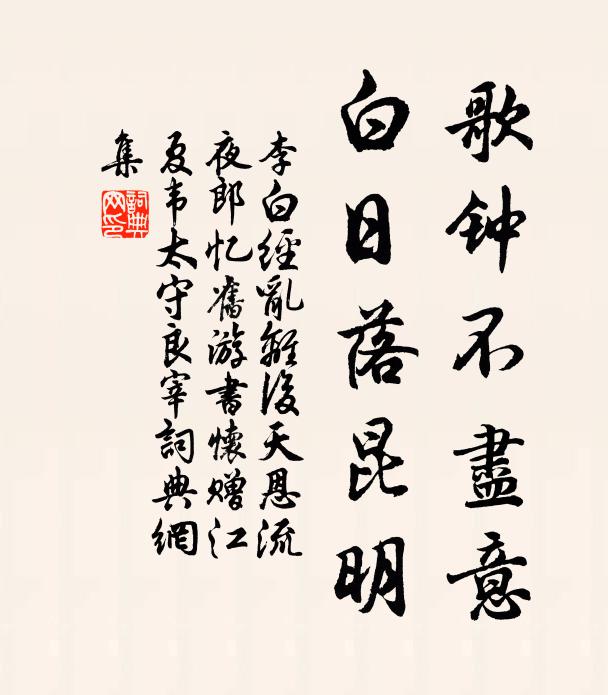 歌钟不盡意
白日落昆明
李白經亂離後天恩流
夜郎忆舊游書懷贈江
夏韦太守良宰詞典網
集
詞典網印